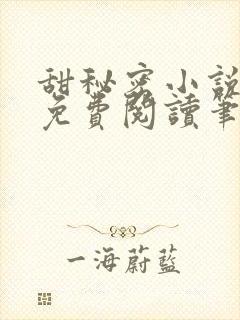 甜秘密小說
免費閱讀筆
一海蔚藍